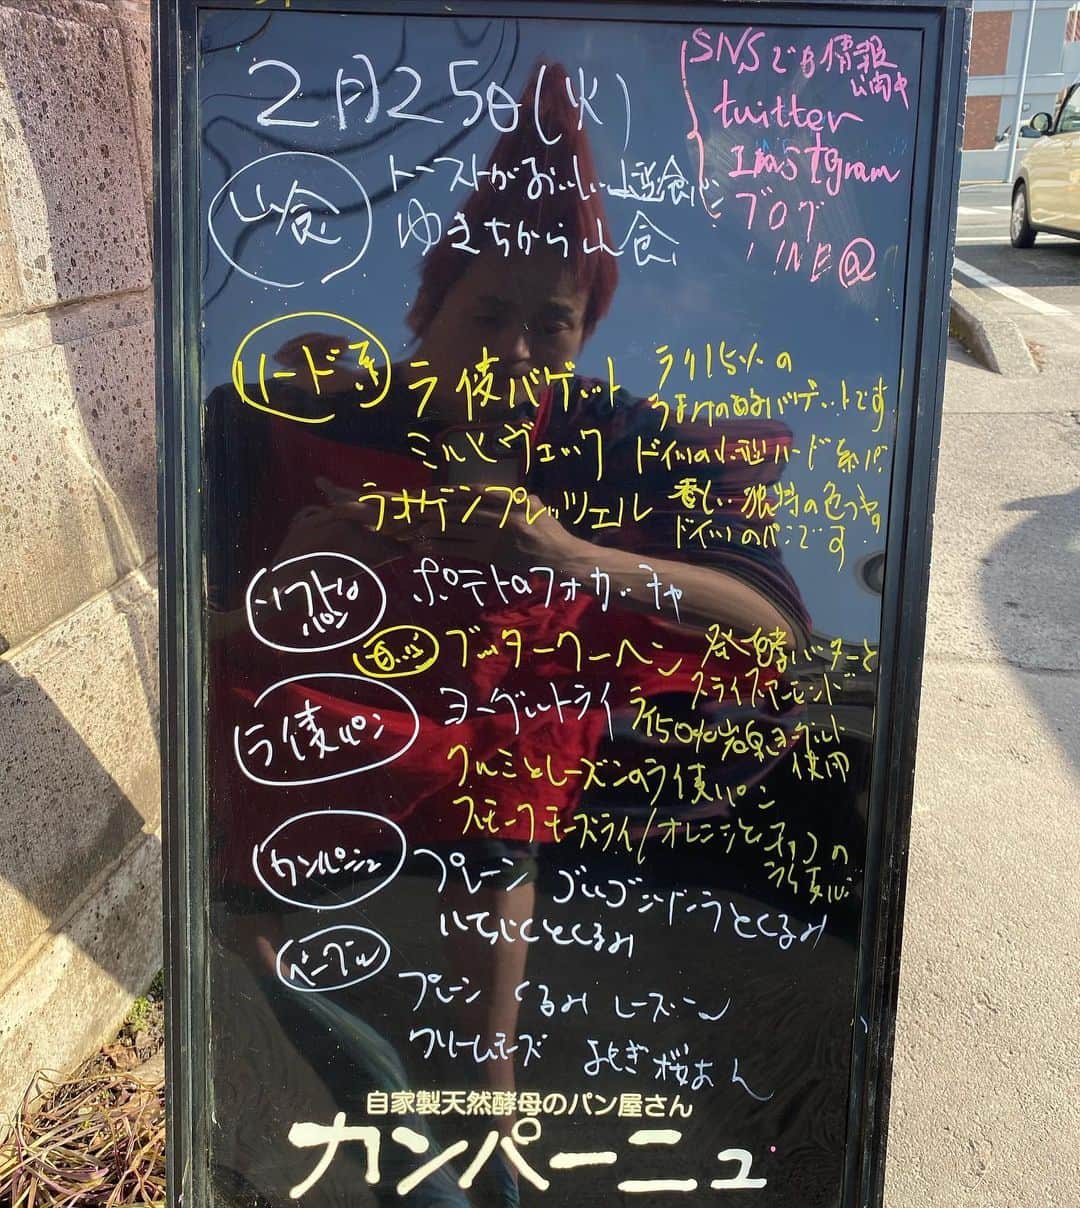 2月25日(火)
SNSでも情報
公開中
tuitter
Instagram
ブログ
LINE@
山食
トーストがおいしい山型食パン
ゆきちから山食
ハード系
ライ麦バゲット
ライ15%の
うまみのあるバゲットです
ミルヒヴェック
ドイツの小型ハード系パン
ラオゲンプレッツェル
香ばしい独特の色つやの
ドイツのパンです
ソフトな
パン
ポテトのフォカッチャ
ブッタークーヘン
発酵バターと
スライスアーモンド
ライ麦パン
ヨーグルトライ
ライ50%岩泉ヨーグルト
使用
クルミとレーズンのライ麦パン
スモークチーズライ/オレンジとチョコの
ライ麦パン
カンパーニュ
プレーン ゴルゴンゾーラとくるみ
いちじくとくるみ
ベーグル
プレーン くるみ レーズン
クリームチーズ よもぎ桜あん
自家製天然酵母のパン屋さん
カンパーニュ